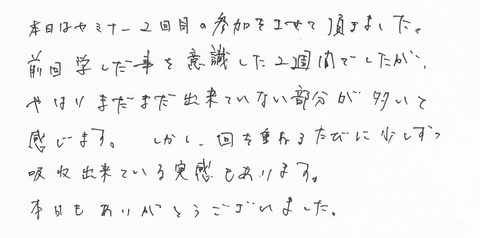 本日はセミナー2回目の参加をさせて頂きました。
前回学んだ事を意識した2週間でしたが、
やはりまだまだ出来ていない部分が多いと
感じます。しかし、回を重ねるたびに少しずつ
吸収出来ている実感もあります。
本日もありがとうございました。